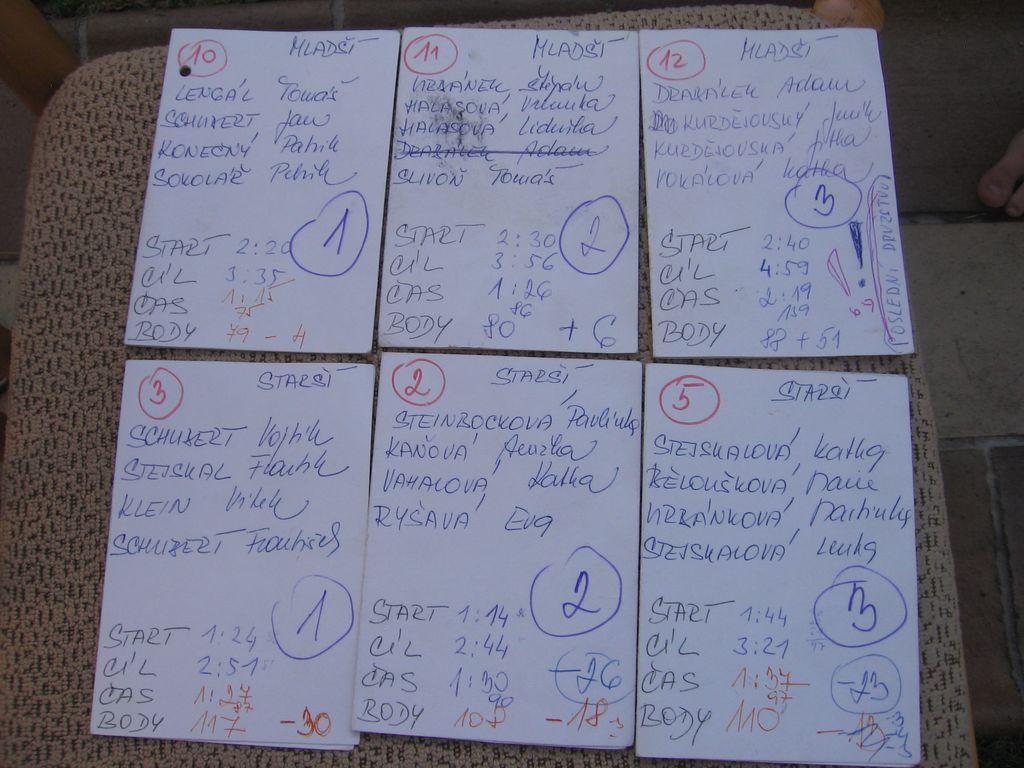 10 MLADŠÍ
LENGÁL Tomáš
SCHUBERT Jan
KONEČNÝ Patrik
SOKOLÁŘ Petrik
1
START 2:20
CÍL 3:35
ČAS 1:15
75
BODY 79 - 4
11 MLADŠÍ
URBÁNEK Štěpán
HALASOVÁ
HALASOVÁ Lidunka
DRABÁLEK Adam
SLIVOŇ Tomáš
2
START 2:30
CÍL 3:56
ČAS 1:26
86
BODY 80 + 6
12 MLADŠÍ
DRABÁLEK Adam
KURDĚJOVSKÝ
KURDĚJOVSKÁ Jitka
VOKÁLOVÁ Katka
3
START 2:40
CÍL 4:59
ČAS 2:19
139
BODY 88 + 51
POSLEDNÍ DRUŽSTVO
3 STARŠÍ
SCHUBERT Vojtík
STEJSKAL Frantík
KLEIN Vítek
SCHUBERT František
1
START 1:24
CÍL 2:51
ČAS 1:27
87
BODY 117 -30
2 STARŠÍ
STEINBOCKOVÁ Pavlinka
KAŇOVÁ Anežka
VAHALOVÁ Katka
RYŠAVÁ Eva
2
START 1:14
CÍL 2:44
ČAS 1:30 -26
90
BODY 108 -18
5 STARŠÍ
STEJSKALOVÁ Katka
BĚLOUŠKOVÁ Marie
URBÁNKOVÁ Martinka
STEJSKALOVÁ Lenka
3
START 1:44
CÍL 3:21
ČAS 1:37 -23
97
BODY 110